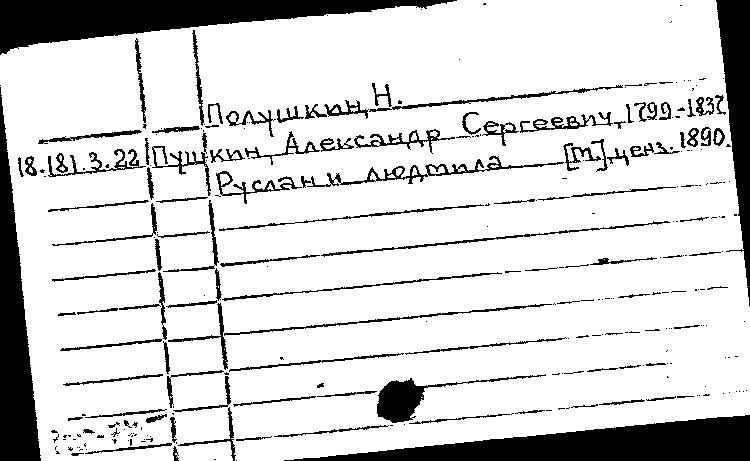 Полушкин, Н.
18.181.3.22 Пушкин, Александр Сергеевич, 1799-1837.
Руслан и людмила [М.], ценз. 1890.